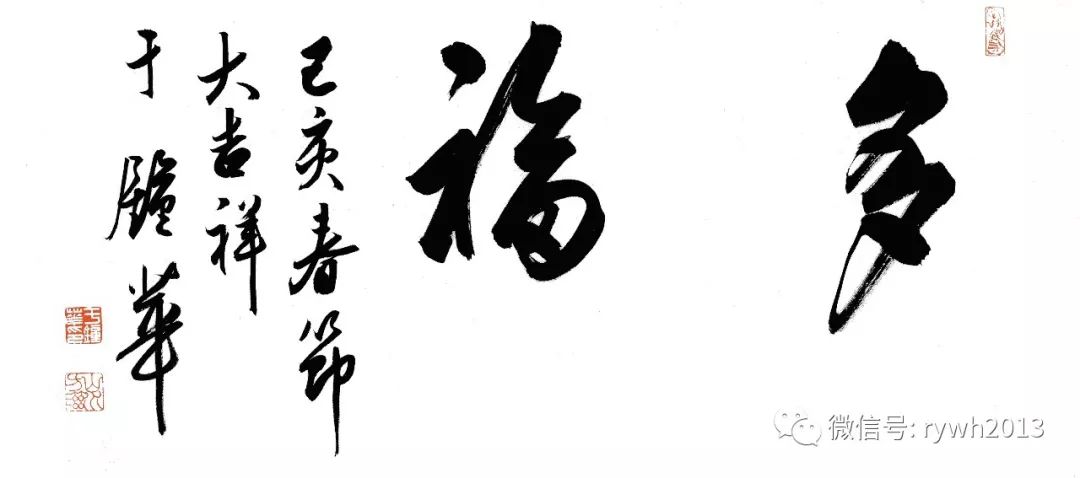 多福
己亥春節
大吉祥
于鍾華
微信号: rywh2013